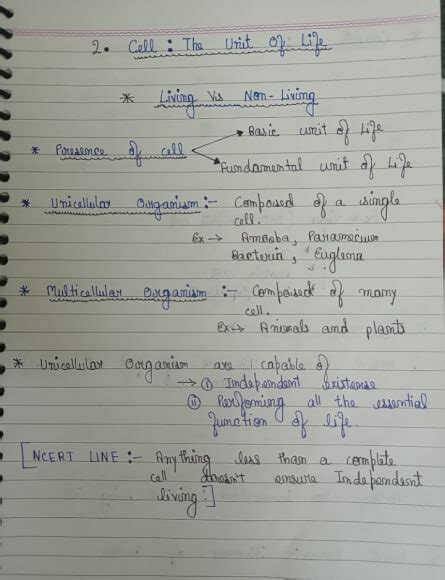 2. Cell : The Unit Of Life
* Living Vs Non-Living
* Presence of cell → Basic unit of Life
→ Fundamental unit of Life
* Unicellular Organism :- Composed of a single
cell.
Ex → Amoeba, Paramecium
Bacteria, Euglena
* Multicellular Organism :- Composed of many
cell.
Ex → Animals and plants
* Unicellular Organism are capable of
→ (i) Independent existense
(ii) Performing all the essential
function of life.
[NCERT LINE :- Anything less than a complete
cell doesn't ensure Independent
living.]